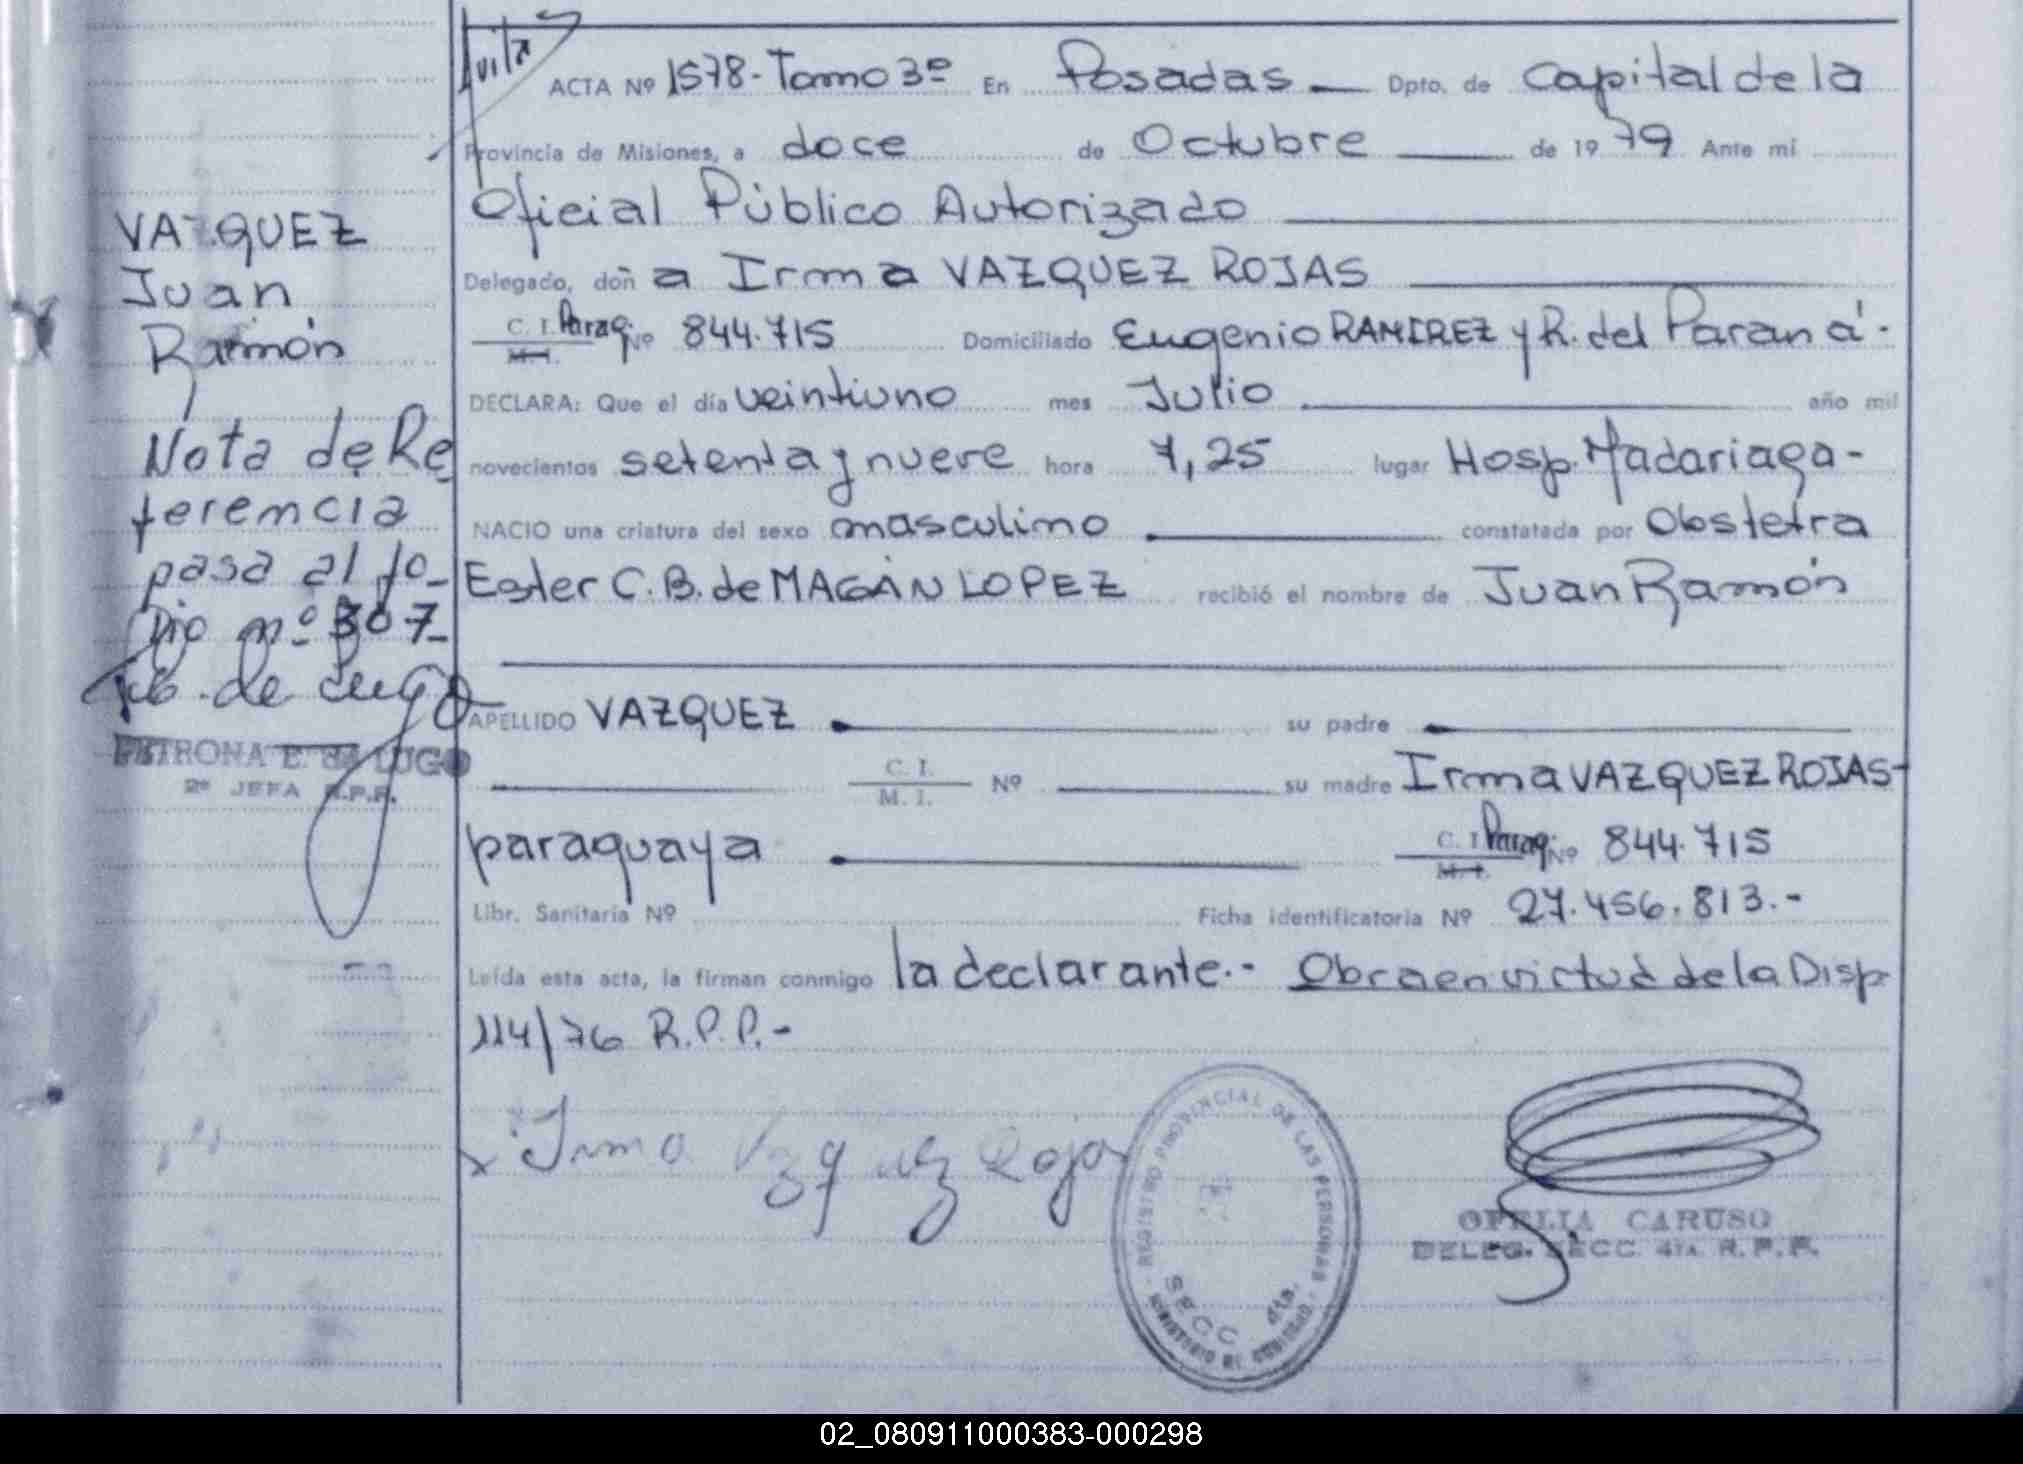 Avila
ACTA Nº 1578-Tomo 3º En Posadas Dpto. de Capital de la
Provincia de Misiones, a doce de Octubre de 1979 Ante mi
Oficial Público Autorizado
Delegado, doña Irma VAZQUEZ ROJAS
C. I. Parag. M. I. Nº 844.715 Domiciliado Eugenio RAMIREZ y R. del Paraná.-
DECLARA: Que el día veintiuno mes Julio año mil
novecientos setenta y nueve hora 7,25 lugar Hosp. Madariaga-
NACIO una criatura del sexo masculino constatada por Obstetra
Ester C. B. de MAGAN LOPEZ recibió el nombre de Juan Ramón
APELLIDO VAZQUEZ su padre
C. I. M. I. Nº su madre Irma VAZQUEZ ROJAS-
paraguaya C. I. Parag. M. I. Nº 844.715
Libr. Sanitaria Nº Ficha identificatoria Nº 27.456.813.-
Leída esta acta, la firman conmigo la declarante.- Obra en virtud de la Disp
114/76 R.P.P.-
Irma Vazquez Rojas
REGISTRO PROVINCIAL DE LAS PERSONAS
SECC 4ta.
MINISTERIO DE GOBIERNO
OFELIA CARUSO
DELEG. SECC. 4TA R.P.P.
VAZQUEZ
Juan
Ramón
Nota de Re
ferencia
pasa al fo-
lio nº 307-
de Lugo
PETRONA E. de LUGO
2º JEFA R.P.P.
02_080911000383-000298